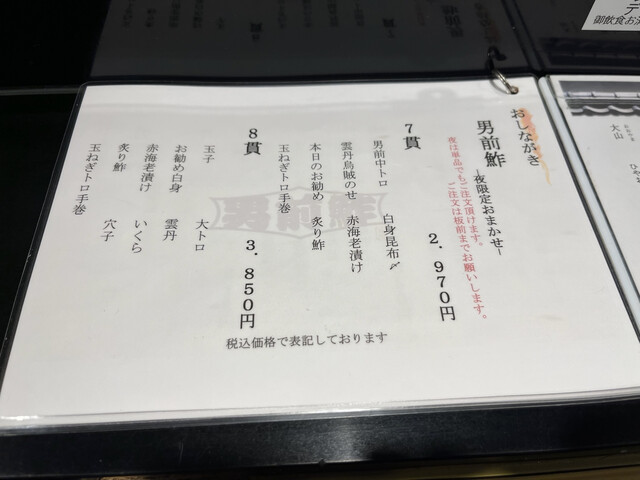 おしながき
男前鮓 ―夜限定おまかせ―
夜は単品でもご注文頂けます。
ご注文は板前までお願いします。
7貫 2.970円
男前中トロ 白身昆布〆
雲丹烏賊のせ 赤海老漬け
本日のお勧め 炙り鮓
玉ねぎトロ手巻
8貫 3.850円
玉子 大トロ
お勧め白身 雲丹
赤海老漬け いくら
炙り鮓 穴子
玉ねぎトロ手巻
税込価格で表記しております
男前鮓
大山
ひや
御飲食お